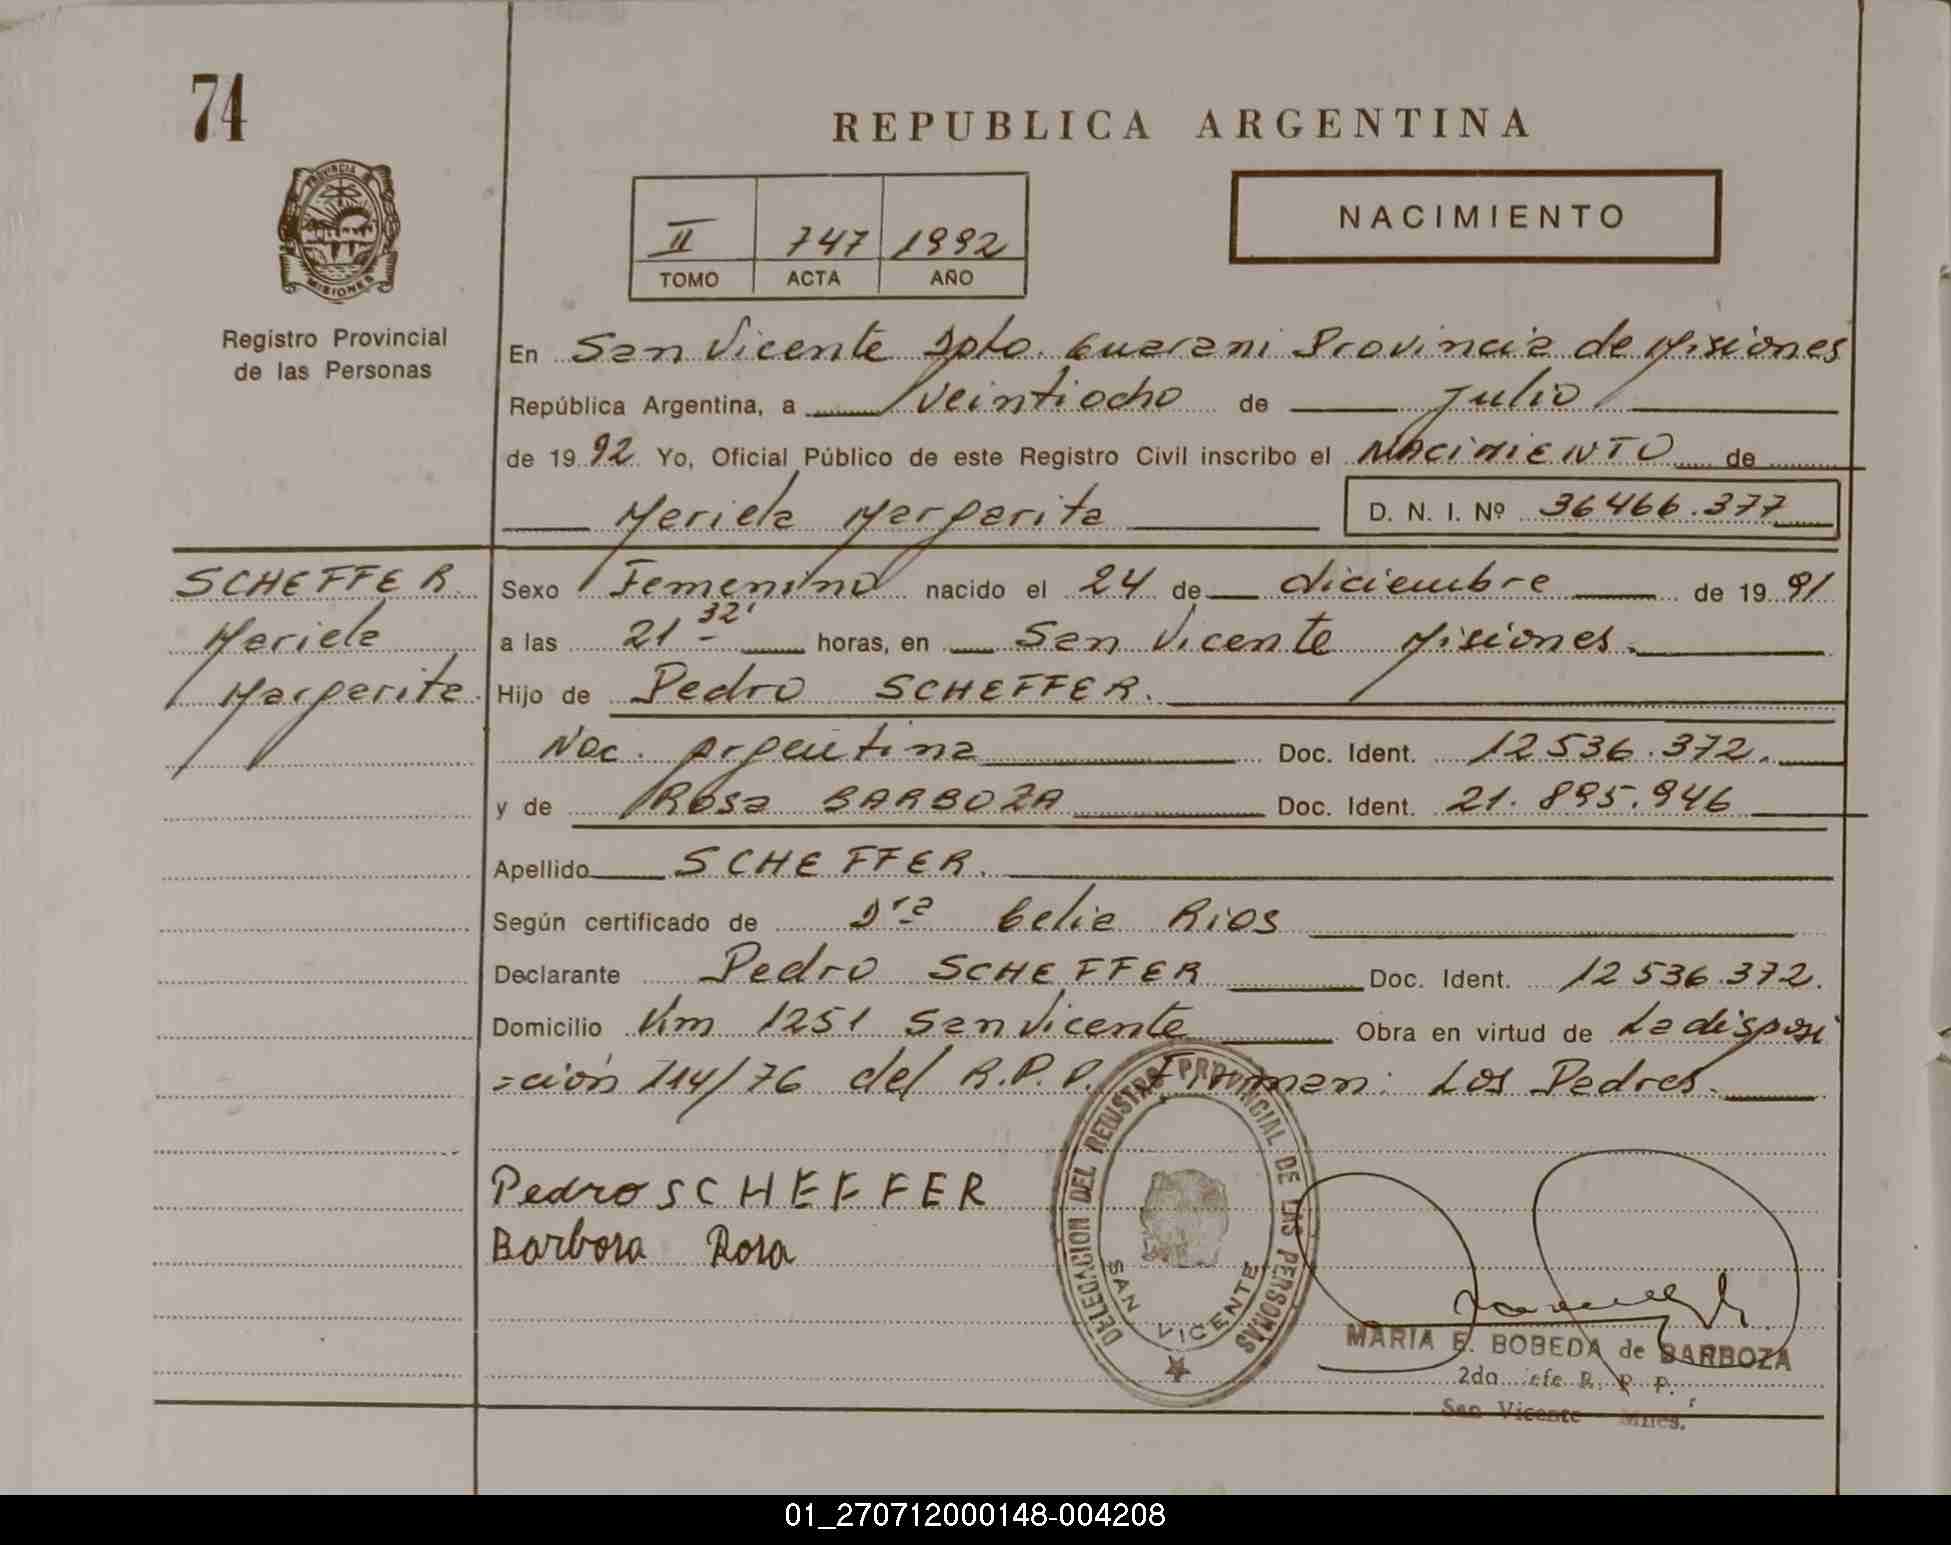 74
REPUBLICA ARGENTINA
PROVINCIA DE
MISIONES
Registro Provincial
de las Personas
II 747 1992
TOMO ACTA AÑO
NACIMIENTO
En San Vicente Dpto. Guarani Provincia de Misiones
República Argentina, a veintiocho de Julio
de 19 92 Yo, Oficial Público de este Registro Civil inscribo el NACIMIENTO de
Mariela Margarita D. N. I. Nº 36466.377
SCHEFFER
Mariela
Margarita
Sexo Femenino nacido el 24 de diciembre de 19 91
a las 21 32' horas, en San Vicente Misiones.
Hijo de Pedro SCHEFFER.
Nac. argentina Doc. Ident. 12536.372.
y de Rosa BARBOZA Doc. Ident. 21.895.946
Apellido SCHEFFER.
Según certificado de Dra Celia Rios
Declarante Pedro SCHEFFER Doc. Ident. 12536.372.
Domicilio Km 1251 San Vicente Obra en virtud de La disposi
=ción 114/76 del R.P.P. Firman: Los Padres.
Pedro SCHEFFER
Barbosa Rosa
DELEGACION DEL REGISTRO PROVINCIAL DE LAS PERSONAS
SAN VICENTE
MARIA E. BOBEDA de BARBOZA
2do Jefe R. P. P.
San Vicente - Mnes.
01_270712000148-004208